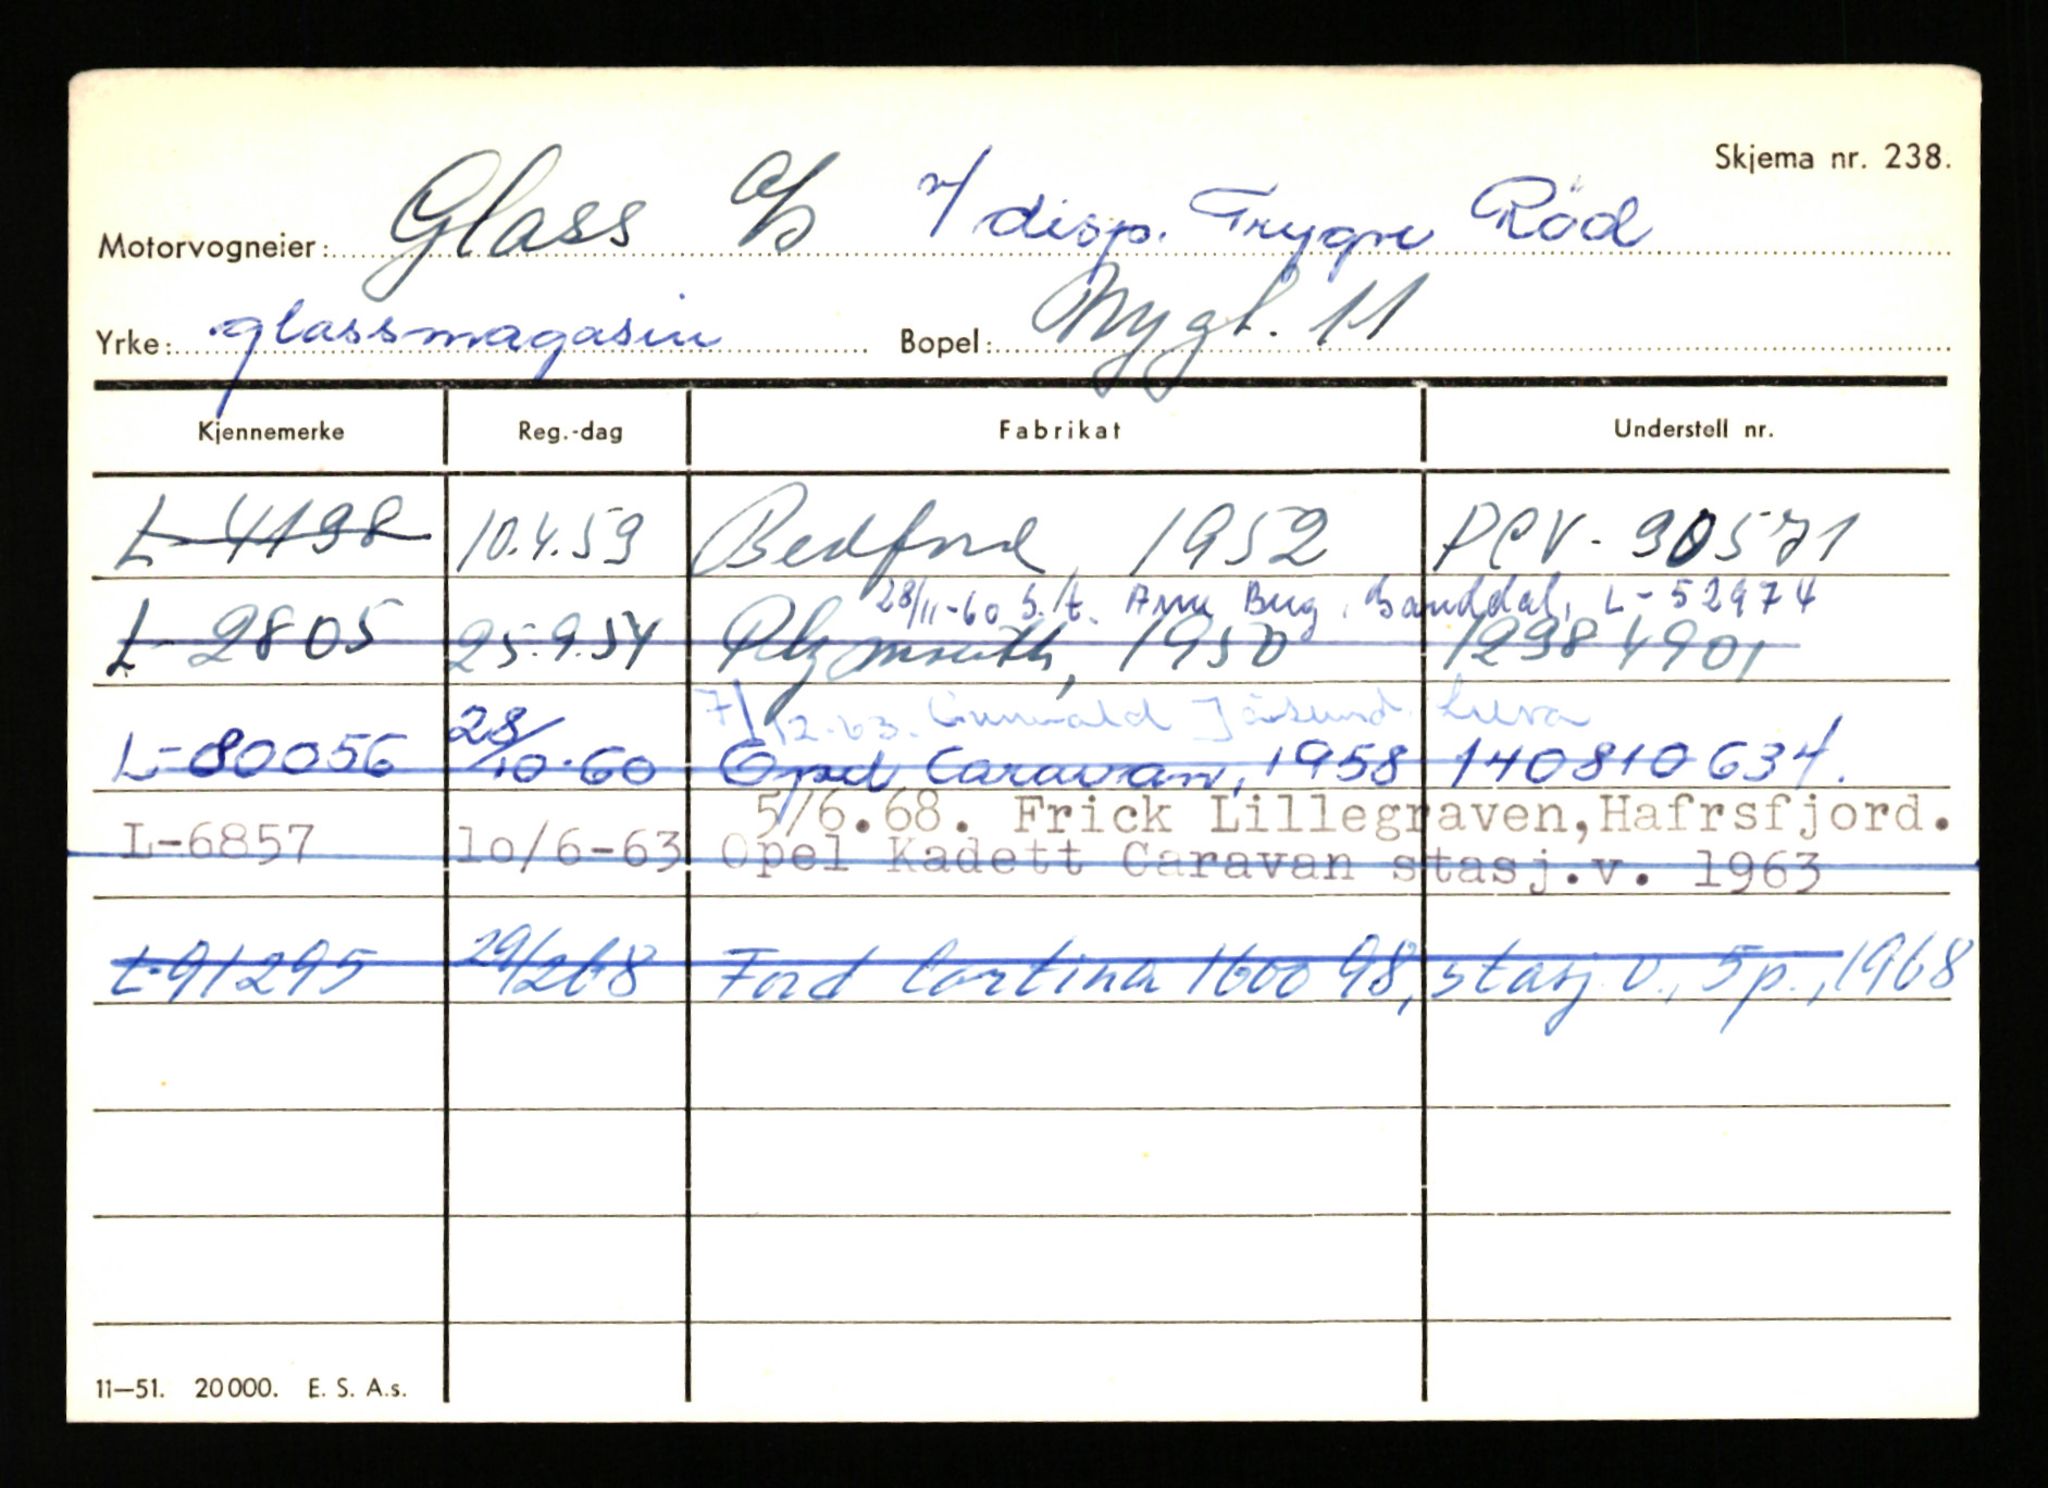 Skjema nr. 238.
Motorvogneier: Glass A/S v/ disp. Trygve Röd
Yrke: glassmagasin Bopel: Nygt. 11
Kjennemerke Reg.-dag Fabrikat Understell nr.
L-4198 10.4.59 Bedford 1952 PCV-90571
28/11-60 s./t. Arne Berg, Ganddal, L-52974
L-2805 25.9.54 Plymouth, 1950 12984901
7/12.63. Gunvald Jåsund
L-80056 28/10.60 Opel Caravan, 1958 140810634.
5/6.68. Frick Lillegraven, Hafrsfjord.
L-6857 10/6-63 Opel Kadett Caravan stasj.v. 1963
L-91295 29/268 Ford Cortina 1600 98, stasj.v., 5p., 1968
11—51. 20000. E. S. A.s.